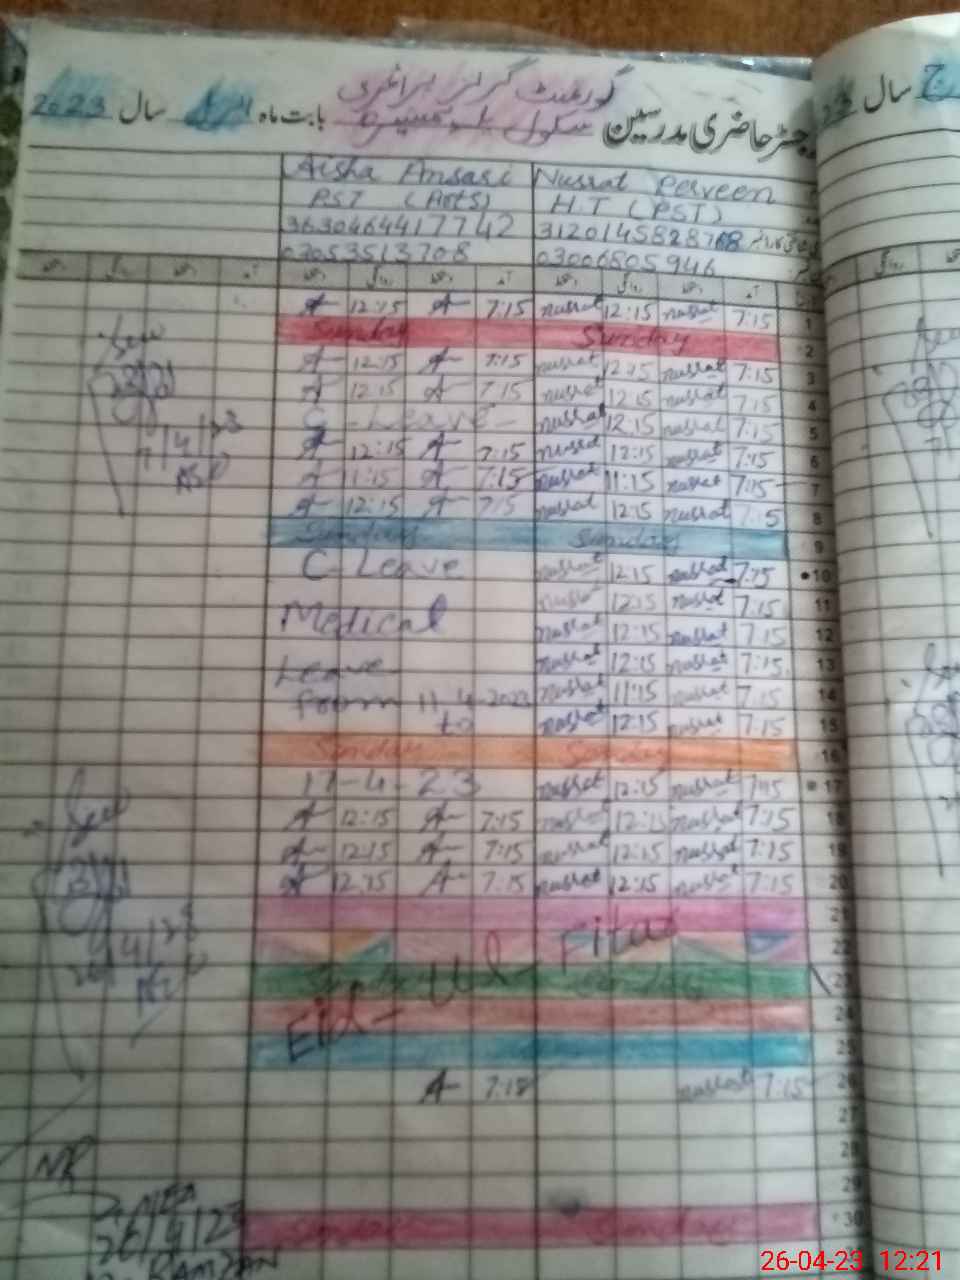 گورنمنٹ گرلز پرائمری
رجسٹر حاضری مدرسین سکول بابت ماہ اپریل سال 2023
سال
Aisha Ansari Nusrat Perveen
PST (Arts) H.T (PST)
3630464417742
03053513708 03006805946
A 12:15 A 7:15 nusrat 12:15 nusrat 7:15 1
Sunday Sunday 2
A 12:15 A 7:15 nusrat 12:15 nusrat 7:15 3
A 12:15 A 7:15 nusrat 12:15 nusrat 7:15 4
C-Leave nusrat 12:15 nusrat 7:15 5
A 12:15 A 7:15 nusrat 12:15 nusrat 7:15 6
A 11:15 A 7:15 nusrat 11:15 nusrat 7:15 7
A 12:15 A 7:15 nusrat 12:15 nusrat 7:15 8
Sunday Sunday 9
C-Leave nusrat 12:15 nusrat 7:15 10
Medical nusrat 12:15 nusrat 7:15 11
nusrat 12:15 nusrat 7:15 12
Leave nusrat 12:15 nusrat 7:15 13
from 11-4-2023 nusrat 11:15 nusrat 7:15 14
to nusrat 12:15 nusrat 7:15 15
Sunday Sunday 16
17-4-23 nusrat 12:15 nusrat 7:15 17
A 12:15 A 7:15 nusrat 12:15 nusrat 7:15 18
A 12:15 A 7:15 nusrat 12:15 nusrat 7:15 19
A 12:15 A 7:15 nusrat 12:15 nusrat 7:15 20
21
22
Sunday Sunday 23
Eid-Ul-Fitar
24
25
A nusrat 7:15 26
27
28
29
Sunday Sunday 30
See
See
MEA
26/4/23
RAMZAN
26-04-23 12:21